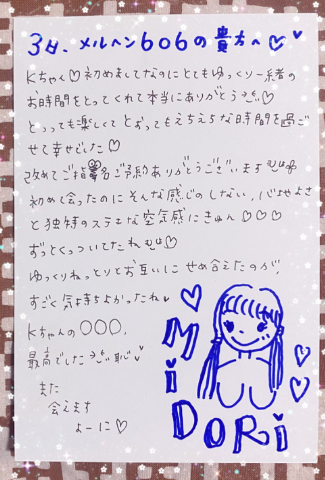 3日、メルヘン606の貴方へ♡♥
Kちゃん♡初めましてなのにとてもゆっくり一緒の
お時間をとってくれて本当にありがとう♡
とっっても楽しくてとおってもえちえちな時間を過ご
せて幸せでした♡
改めてご指名ご予約ありがとうございます
初めて会ったのにそんな感じのしない、心地よさ
と独特のステキな空気感にきゅん♡♡♡
ずっとくっついてたね♡
ゆっくりねっとりとお互いにせめ合えたのが、
すごく気持ちよかったね♥
Kちゃんの〇〇〇、
最高でした 恥♥
また
会えます
よーに♡
MiDORi